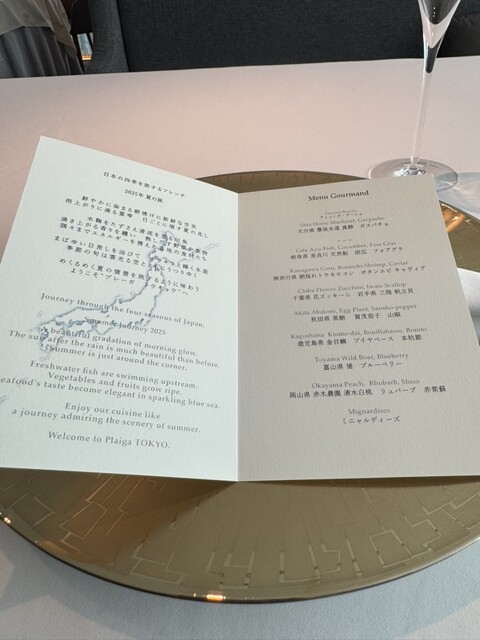 日本の四季を旅するフレンチ
2025年 夏の旅
鮮やかに染まる朝焼けに新鮮な空気
雨上がりに薫る葉雫 日ごとに増す夏の兆し
水飴をたずさえ清流を
湧き上がる香りを纏い 熟した野菜や果物
隅々までエネルギーを
まばゆい日差しを浴びて
季節の旬は
めくるめく夏の情景を旅するように味わう
ようこそ“プレーガ
Journey through the four seasons of Japan.
Summer Journey 2025
A beautiful gradation of morning glow.
The sun after the rain is much beautiful than before.
Summer is just around the corner.
Freshwater fish are swimming upstream.
Vegetables and fruits grow ripe.
eafood's taste become elegant in sparkling blue sea.
Enjoy our cuisine like
a journey admiring the scenery of summer.
Welcome to Plaiga TOKYO.
Menu Gourmand
Oita Horse Mackerel, Gazpacho
大分県 豊後水道 真鯵 ガスパチョ
Gifu Ayu-Fish, Cucumber, Foie Gras
岐阜県 長良川 天然鮎 胡瓜 フォアグラ
Kanagawa Corn, Botanebi-Shrimp, Caviar
神奈川県 朝採れトウモロコシ ボタンエビ キャヴィア
Chiba Flower Zucchini, Iwate Scallop
千葉県 花ズッキーニ 岩手県 三陸 帆立貝
Akita Abalone, Egg Plant, Sansho-pepper
秋田県 黒鮑 賀茂茄子 山椒
Kagoshima Kinme-dai, Bouillabaisse, Bonito
鹿児島県 金目鯛 ブイヤベース 本枯節
Toyama Wild Boar, Blueberry
富山県 猪 ブルーベリー
Okayama Peach, Rhubarb, Shiso
岡山県 赤木農園 清水白桃 リュバーブ 赤紫蘇
Mignardises
ミニャルディーズ